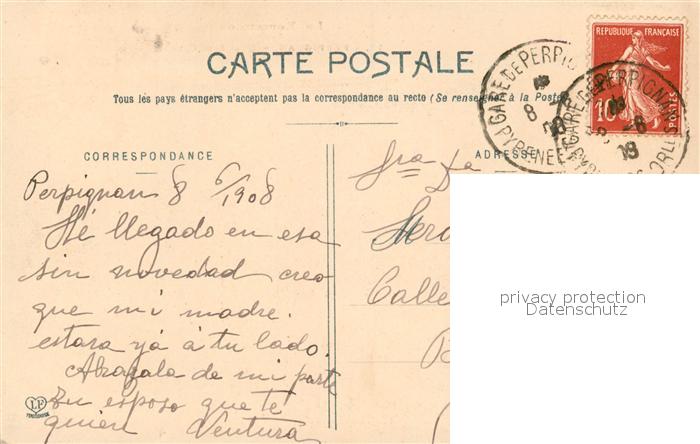 RÉPUBLIQUE FRANÇAISE
10
POSTES
CARTE POSTALE
GARE DE PERPIGNAN
8
GARE DE PERPIGNAN
Tous les pays étrangers n'acceptent pas la correspondance au recto (Se renseigner à la Poste
CORRESPONDANCE
ADRESSE
Perpignan 8 6/1908
Hé llegado en esa
sin novedad creo
que mi madre.
estara yá á tu lado.
Abrazala de mi parte
Tu esposo que te
quien Ventura
LP
Sra Da
Calle
privacy protection
Datenschutz